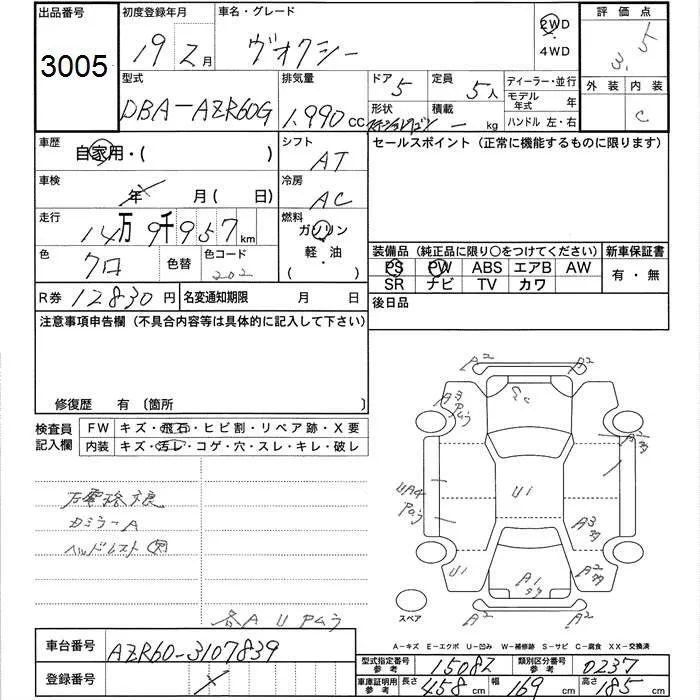 出品番号 3005
初度登録年月 19 2月
車名・グレード ヴォクシー
2WD
4WD
評価点 3.5
外装 内装 C
型式 DBA-AZR60G
排気量 1,990cc
ドア 5
定員 5人
形状
積載 - kg
ディーラー・並行
モデル年式 年
ハンドル 左・右
車歴 自家用・( )
シフト AT
セールスポイント (正常に機能するものに限ります)
車検 年 月 ( 日)
冷房 AC
走行 14万9千957km
燃料 ガソリン
軽・油
( )
色 クロ 色替 色コード 202
装備品 (純正品に限り○をつけてください) 新車保証書
PS PW ABS エアB AW
SR ナビ TV カワ
有・無
R券 12830円 名変通知期限 月 日
後日品
注意事項申告欄 (不具合内容等は具体的に記入して下さい)
修復歴 有 〔箇所 〕
検査員記入欄
FW キズ・飛石・ヒビ割・リペア跡・X要
内装 キズ・汚レ・コゲ・穴・スレ・キレ・破レ
カミラーA
ヘッドレスト欠
各A U Pムラ
A2 A2
A3 Pムラ
A2
UA4 Pムラ
Ui
A3
Ui
A1
A2
A2 A2
スペア
A-キズ E-エクボ U-凹み W-補修跡 S-サビ C-腐食 XX-交換済
車台番号 AZR60-3107839
登録番号
型式指定番号 参考 15082 類別区分番号 参考 0237
車庫証明用 参考 長さ 458cm 幅 169cm 高さ 185cm